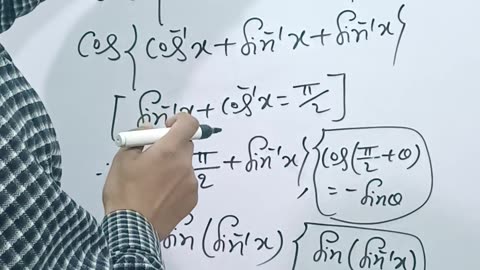 cos{cos⁻¹x + sin⁻¹x + sin⁻¹x}
[sin⁻¹x + cos⁻¹x = π/2]
π/2 + sin⁻¹x} {cos(π/2 + θ)
= - sinθ
sin(sin⁻¹x) {sin(sin⁻¹x)